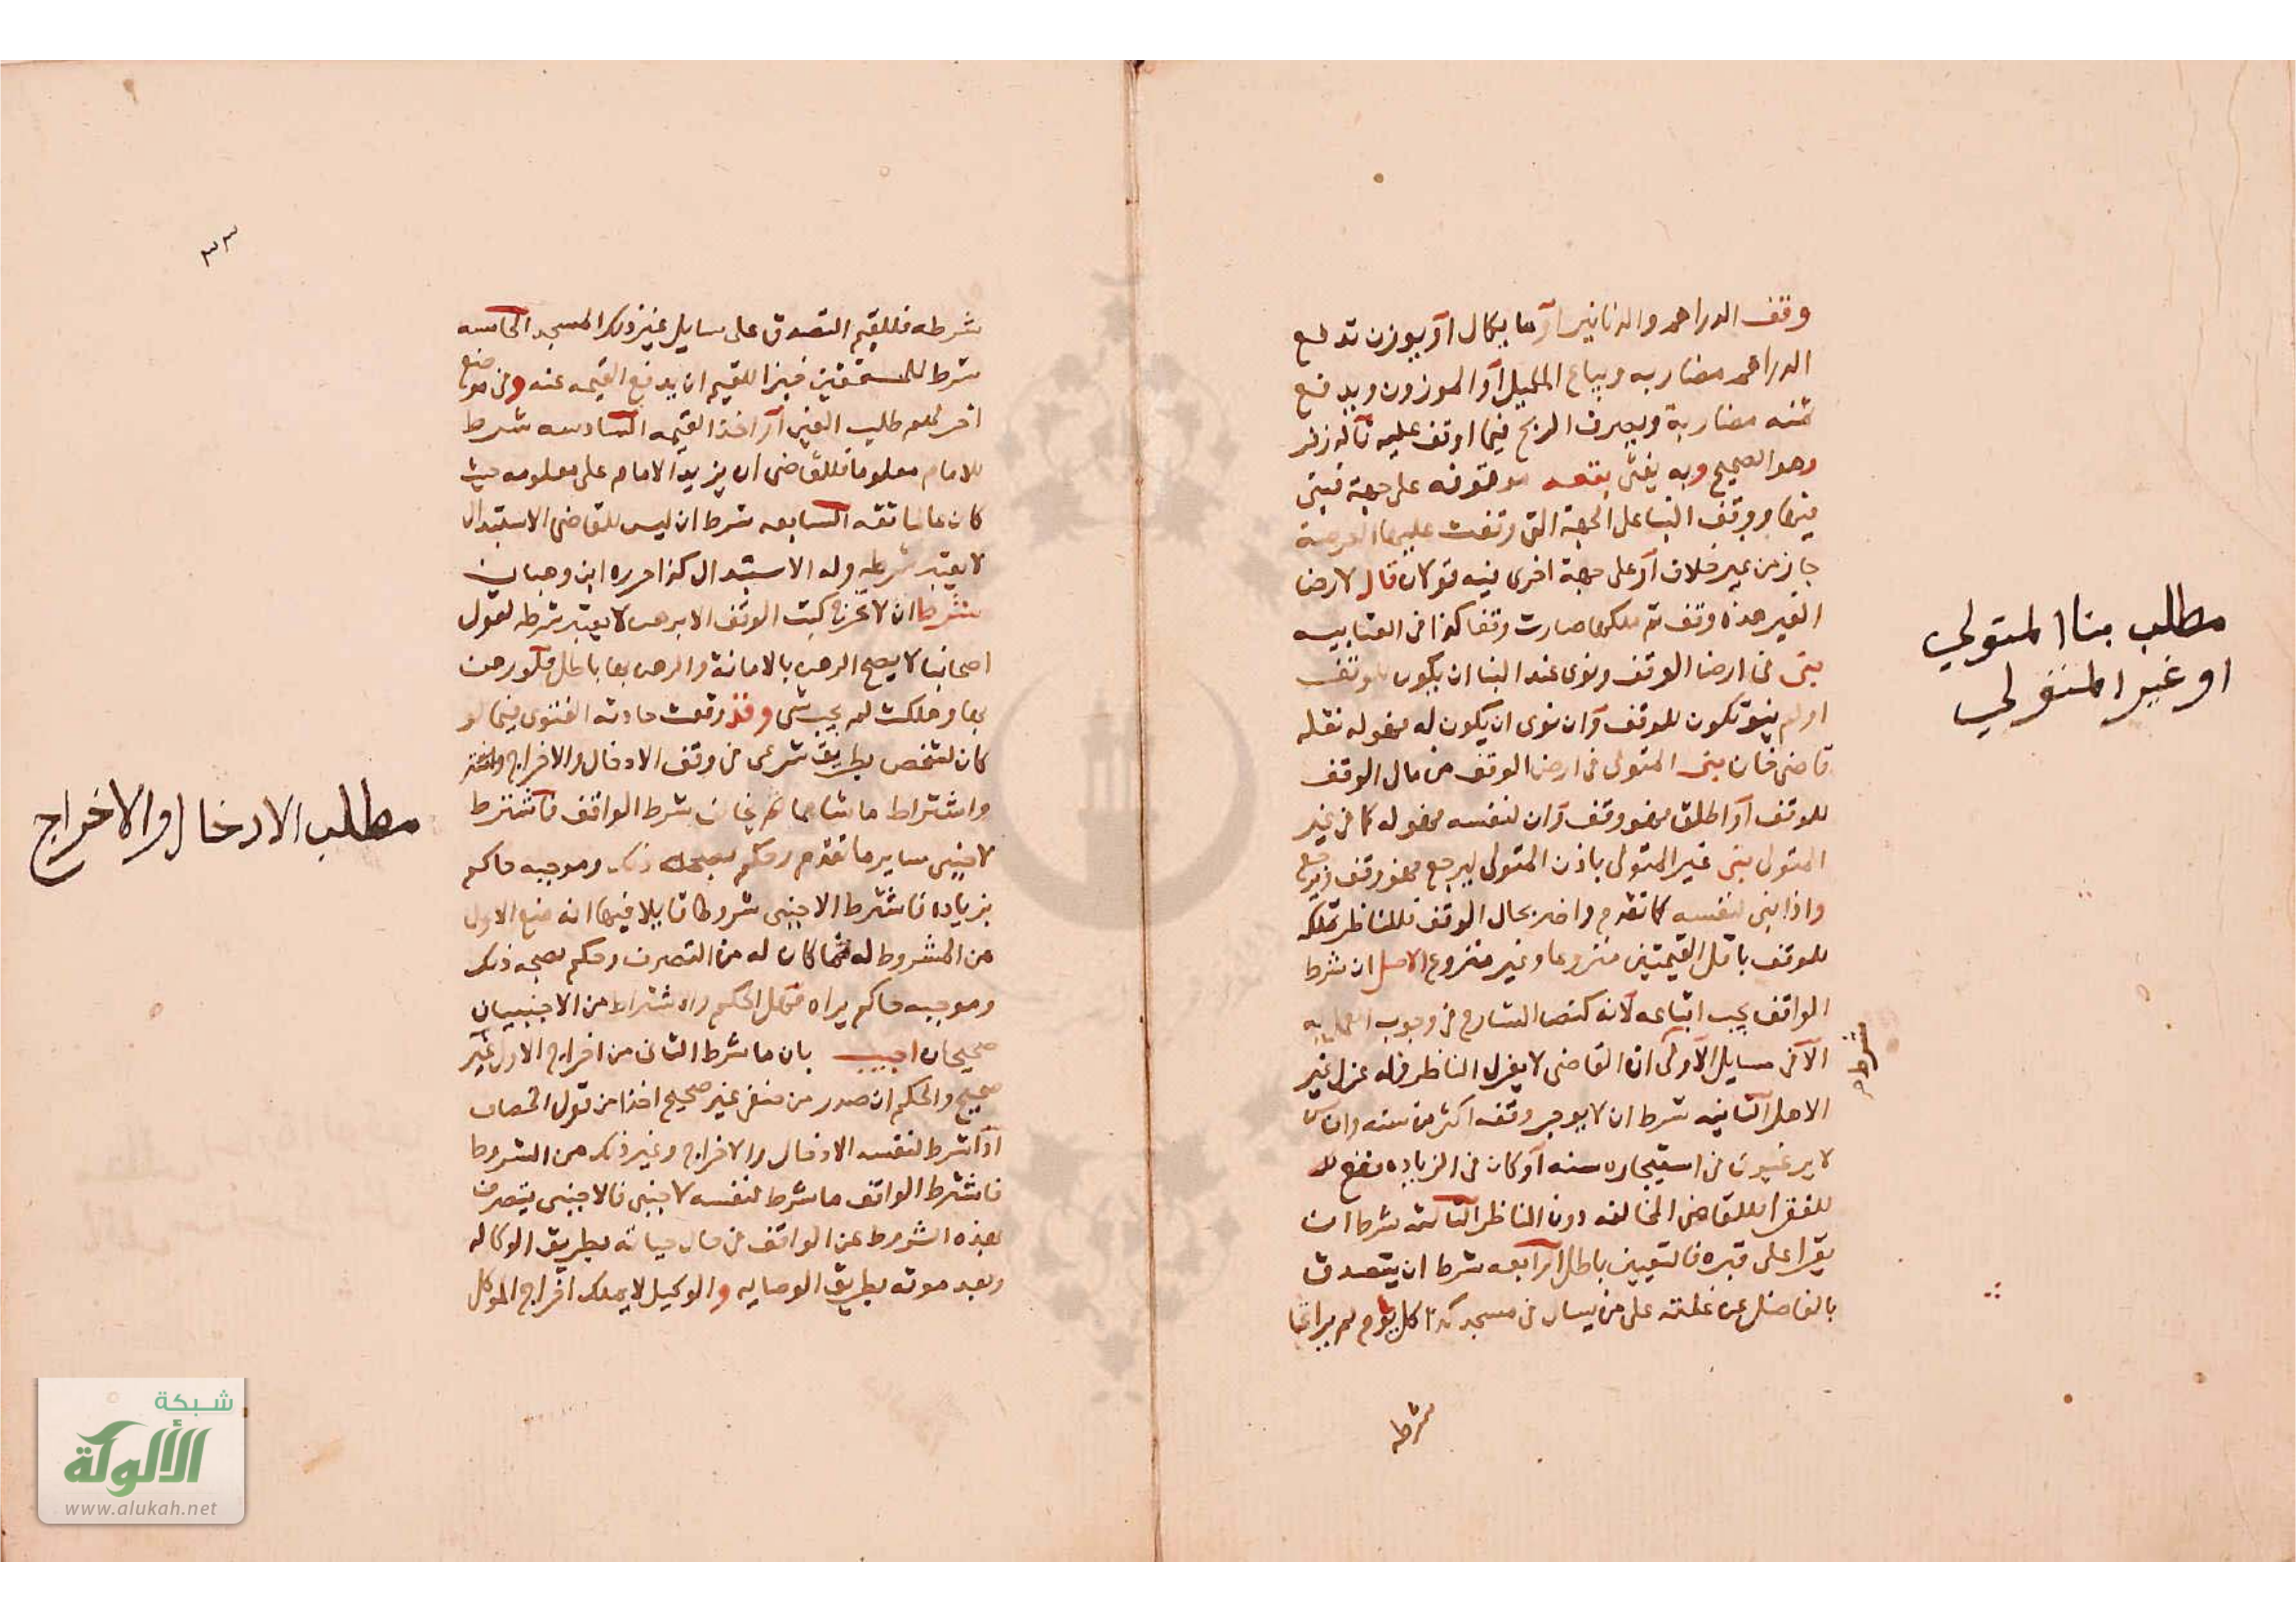 وقف الدراهم والدنانير او ما يكال او يوزن تدفع
الدراهم مضاربه ويباع المكيل او الموزون ويدفع
ثمنه مضاربة ويصرف الربح فيما اوقف عليه قاله زفر
وهو الصحيح وبه يفتى بقعه موقوفه على جهة فبنى
فيها ووقف البنا على الجهة التي وقفت عليها العرصة
جاز من غير خلاف او على جهة اخرى فيه قولان قال لارض
الغير هذه وقف ثم ملكها صارت وقفا كذا في العتابيه
بنى في ارض الوقف ونوى عند البنا ان يكون للوقف
او لم ينو تكون للوقف وان نوى ان يكون له فهو له نقله
قاضي خان بنى المتولى في ارض الوقف من مال الوقف
للوقف او اطلق فهو وقف وان لنفسه فهو له كما في غير
المتولى بنى غير المتولى باذن المتولى ليرجع فهو وقف ويرجع
واذا بنى لنفسه كما تقدم واضر بحال الوقف فللناظر تملكه
للوقف باقل القيمتين منزوعا وغير منزوع الاصل ان شرط
الواقف يجب اتباعه لانه كنص الشارع في وجوب العمل به
الا في مسايل الاولى ان القاضى لا يعزل الناظر فله عزل غير
الاهل الثانيه شرط ان لا يوجر وقفه اكثر من سنه وان
لا يرغبون في استيجاره سنه او كان في الزياده نفع
للفقرا فللقاضى المخالفه دون الناظر الثالثه شرط ان
يقرا على قبره فالتعيين باطل الرابعه شرط ان يتصدق
بالفاضل عن غلته على من يسال في مسجد كذا كل يوم لم يراعا
شرطه
مطلب بنا المتولي
او غير المتولي
شرطه
٣٣
شرطه فللقيم التصدق على سايل غير ذلك المسجد الخامسه
شرط للمستحقين خبزا للقيم ان يدفع القيمه عنه وفي موضع
اخر لهم طلب العين او اخذ القيمه السادسه شرط
للامام معلوما فللقاضى ان يزيد الامام على معلومه حيث
كان عالما تقه السابعه شرط ان ليس للقاضى الاستبدال
لا يعتبر شرطه وله الاستبدال كذا حرره ابن وهبان
شرط ان لا تخرج كتب الوقف الا برهن لا يعتبر شرطه لقول
اصحابنا لا يصح الرهن بالامانة والرهن بها باطل فلو رهن
بها وهلكت لم يجب شى وقد وقعت حادثه الفتوى فيما لو
كان لشخص بطريق شرعى في وقف الادخال والاخراج
واشتراط ما شا مما لم يخالف شرط الواقف فاشترط
لاجنبى ساير ما تقدم وحكم بصحة ذلك وموجبه حاكم
بزياده فاشترط الاجنبى شروطا قايلا فيها انه منع الاول
من المشروط له مما كان له من التصرف وحكم بصحه ذلك
وموجبه حاكم يراه فهل الحكم والاشتراط من الاجنبيان
صحيحان اجيب بان ما شرط الثانى من اخراج الاول غير
صحيح والحكم ان صدر من منفذ غير صحيح اخذا من قول الخصاف
اذا شرط لنفسه الادخال والاخراج وغير ذلك من الشروط
فاشترط الواقف ما شرط لنفسه لاجنبى فالاجنبى يتصرف
بهذه الشروط عن الواقف في حال حياته بطريق الوكاله
وبعد موته بطريق الوصايه والوكيل لا يملك اخراج الموكل
مطلب الادخال والاخراج
شبكة
الألوكة
www.alukah.net